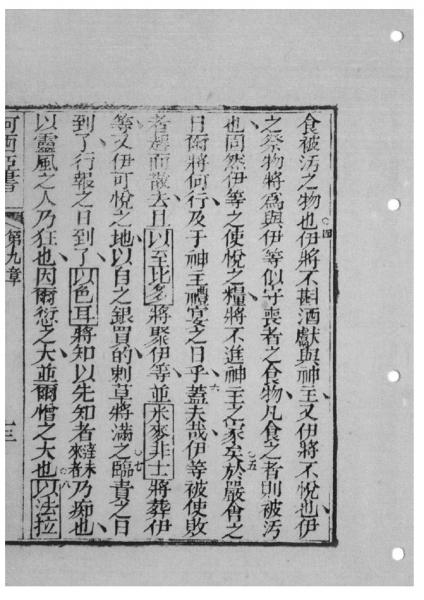 食被汚之物也四伊將不斟酒獻與神主又伊將不悅也伊
之祭物將爲與伊等似守喪者之食物凡食之者則被汚
也因然伊等之使悅之糧將不進神主之家矣五於嚴會之
日爾將何行及于神主禮宴之日乎六蓋夫哉伊等被使敗
者避而散去且以至比多將聚伊等並米麥非士將葬伊
等又伊可悅之地以自之銀買的刺草將滿之七臨責之日
到了行報之日到了以色耳將知以先知者乃痴也
以靈風之人乃狂也因爾愆之大並爾憎之大也八以法拉
何西亞書 第九章 十三